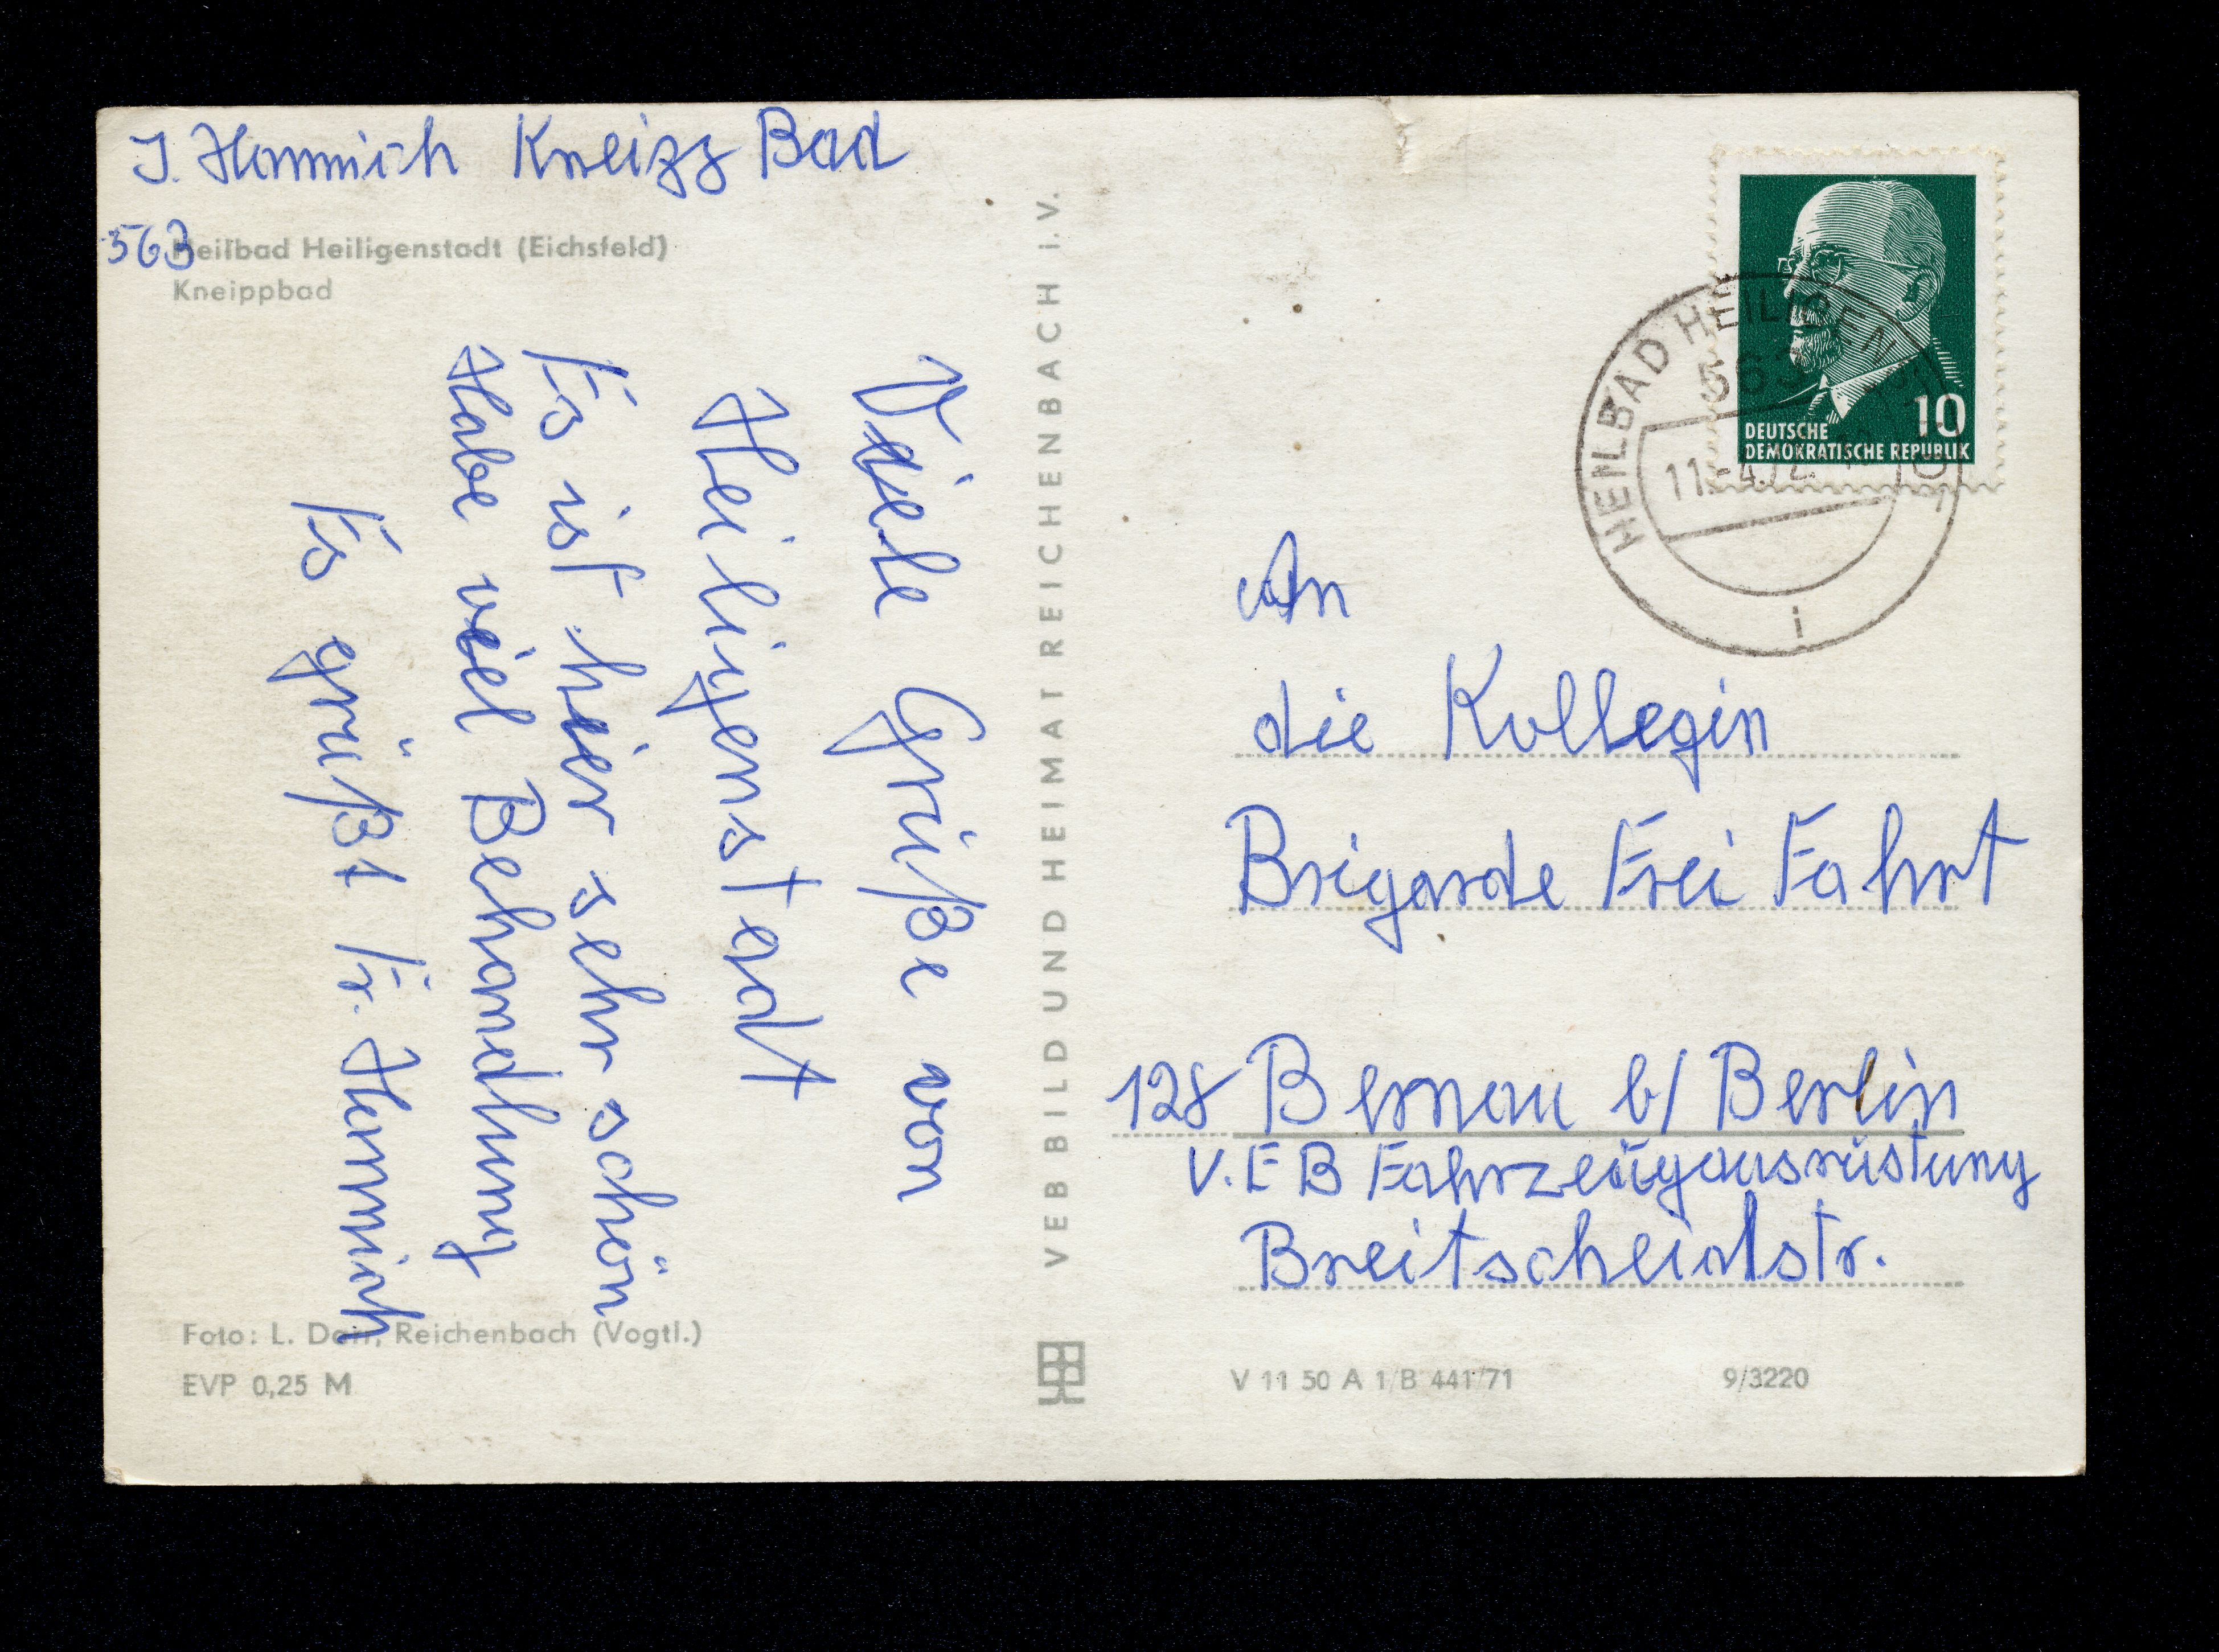 J. Hennrich Kneipp Bad
563
Heilbad Heiligenstadt (Eichsfeld)
Kneippbad
Viele Grüße von
Heiligenstadt
Es ist hier sehr schön
Habe viel Behandlung
Es grüßt Fr. Hennrich
Foto: L. Reichenbach (Vogtl.)
EVP 0,25 M
VEB BILD UND HEIMAT REICHENBACH i.V.
DEUTSCHE
DEMOKRATISCHE REPUBLIK
10
HEILBAD HEILIGEN
563
11.-4.72
i
An
die Kollegin
Brigarde Frei Fahrt
128 Bernau b/ Berlin
V.E B Fahrzeugausrüstung
Breitscheidstr.
V 11 50 A 1/B 441/71
9/3220